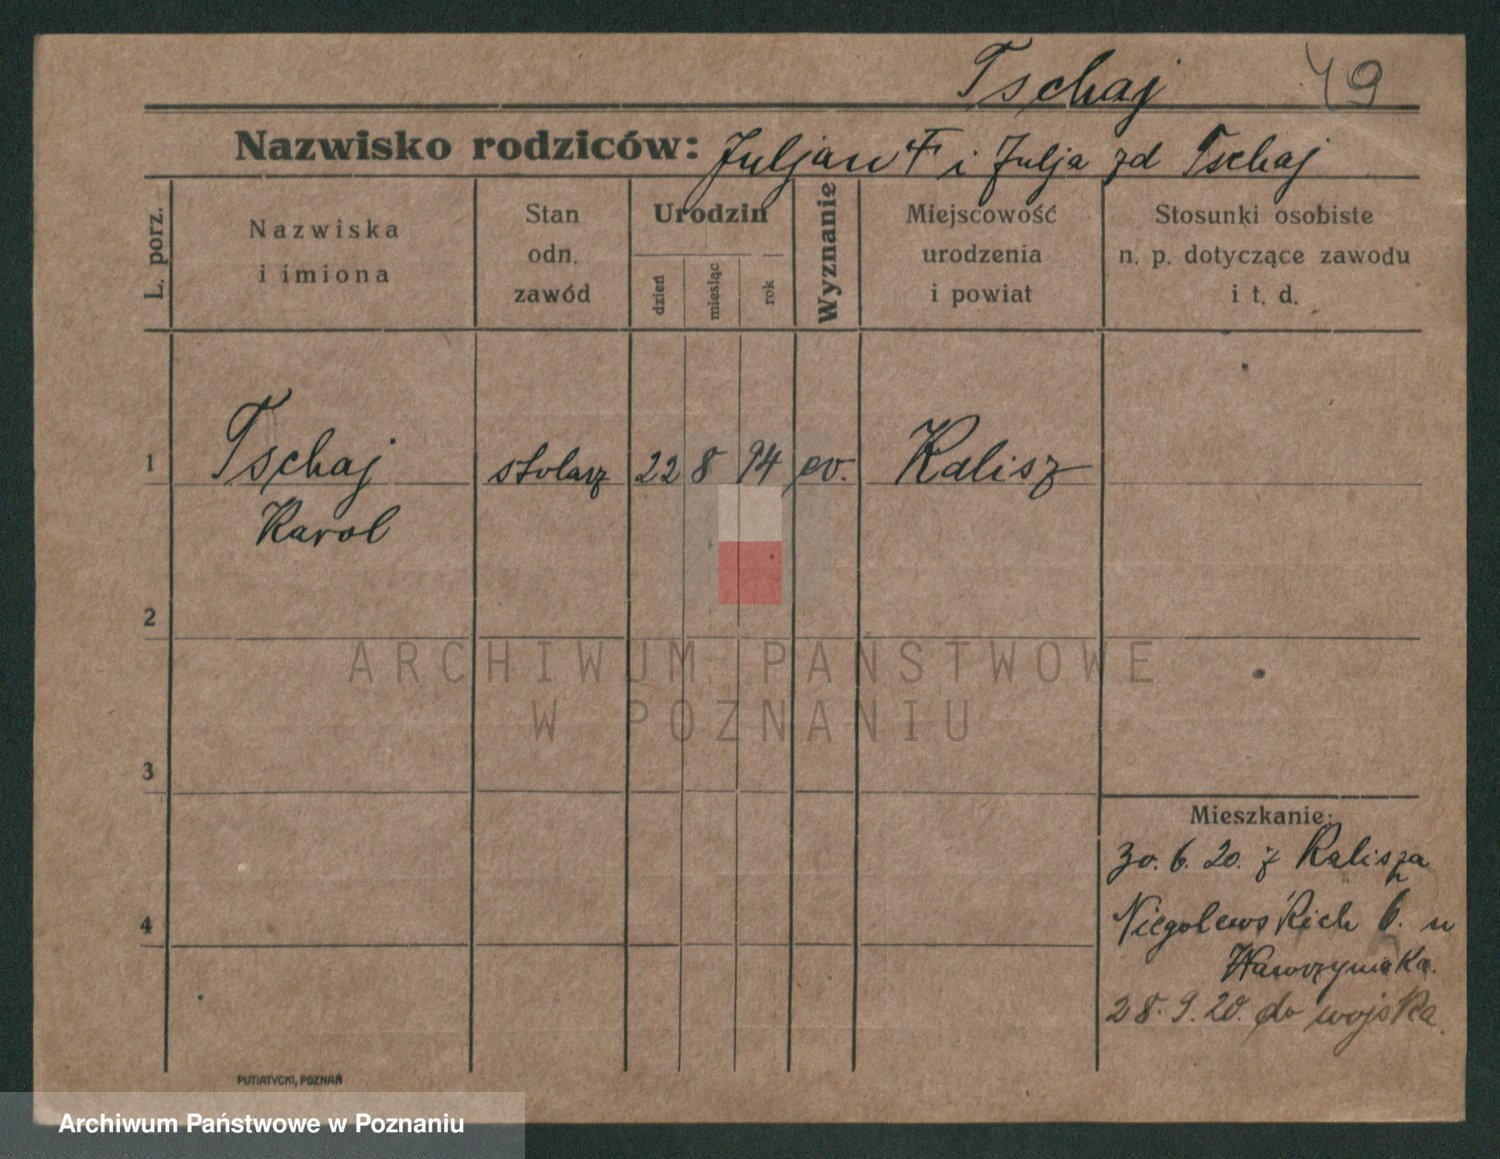 Tschaj 49
Nazwisko rodziców: Juljan i Julja zd Tschaj
L. porz.
Nazwiska
i imiona
Stan
odn.
zawód
Urodzin
dzień
miesiąc
rok
Wyznanie
Miejscowość
urodzenia
i powiat
Stosunki osobiste
n. p. dotyczące zawodu
i t. d.
1 Tschaj stolarz 22 8 94 ev. Kalisz
Karol
2
ARCHIWUM PAŃSTWOWE
W POZNANIU
3
Mieszkanie:
30. 6. 20. z Kalisza
Niegolewskich 6. u
4
Wawrzyniaka.
28. 9. 20. do wojska.
PUTIATYCKI, POZNAŃ
Archiwum Państwowe w Poznaniu